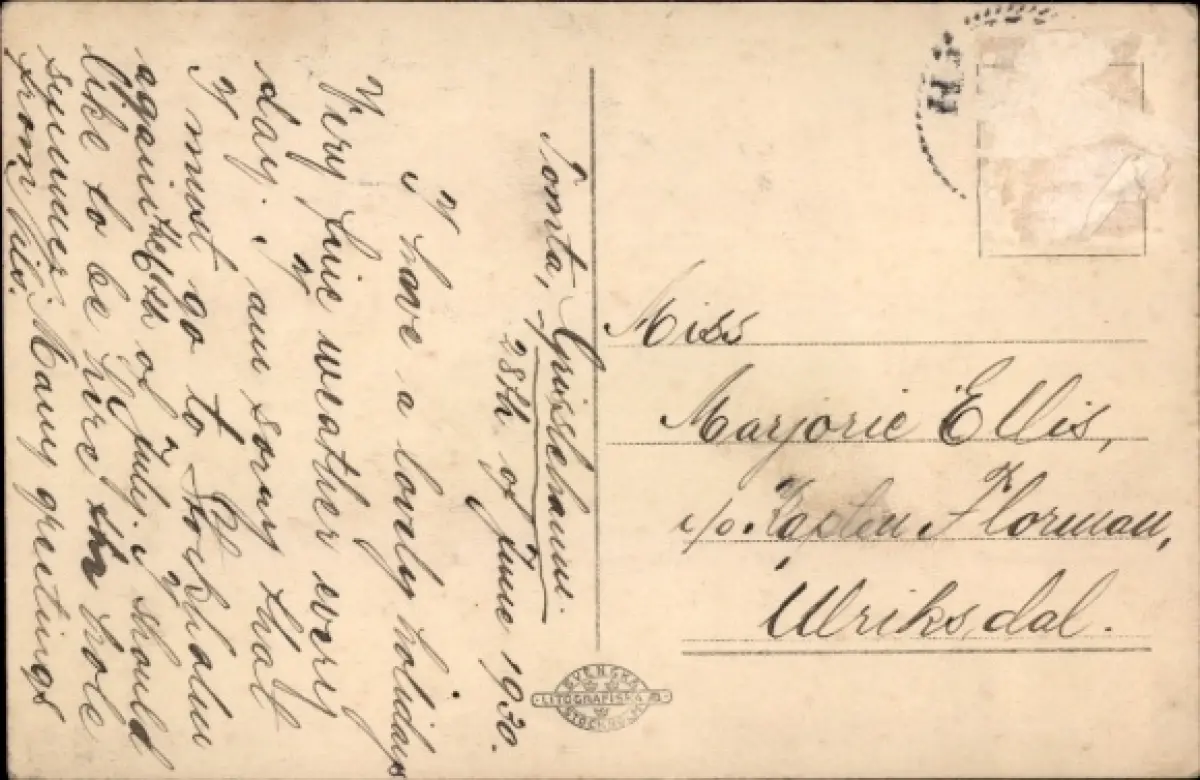 Tomta, Grisslehamn.
28th of June 1930.
I have a lovely holiday
Very fine weather every
day. I am sorry that
I must go to Stockholm
again the 6th of July. I should
like to be here the hole
summer. Many greetings
from
Miss
Marjorie Ellis,
c/o. Kapten Florman,
Ulriksdal.
SVENSKA
LITOGRAFISKA AB.
STOCKHOLM